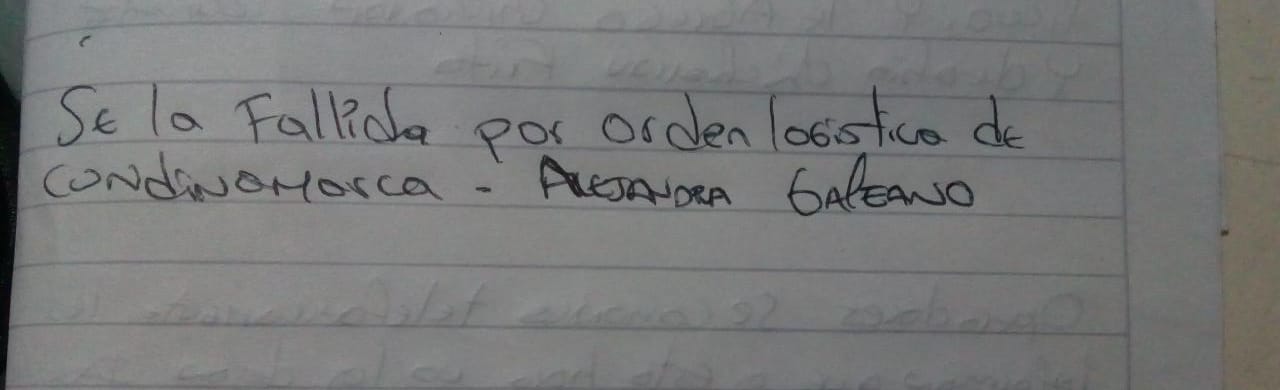 Se la Fallida por orden logistica de
Condinamarca - Alejandra Galeano